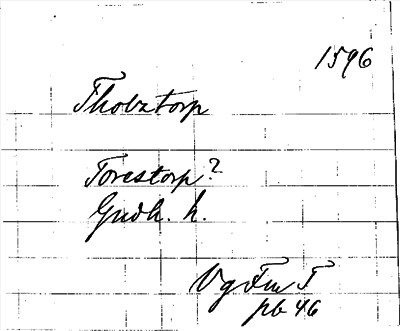 1596
Tholztorp
Torestorp?
Gudh. h.
Vg Fu T
pb 46